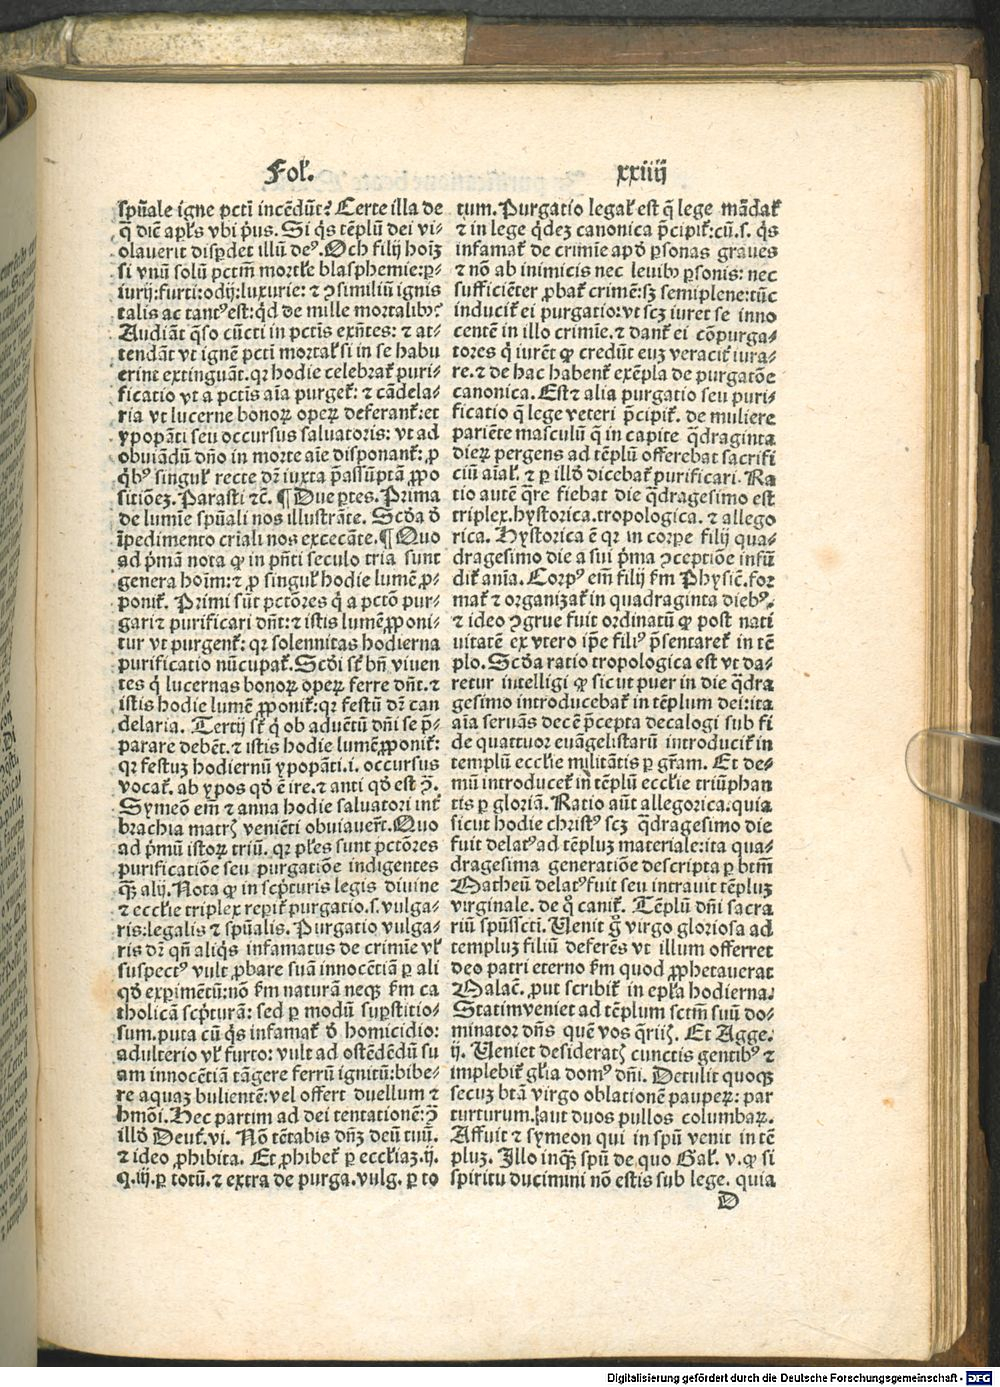 Fol. xxiiij
spũale igne pcti incẽdũt? Certe illa de
q̃ diẽ apl's vbi pͥus. Si qͥs tẽplũ dei vi⸗
olauerit disp̱det illũ deꝰ. Och filij hoĩz
si vnũ solũ pctm̃ mortl'e blasphemie: p̱⸗
iurij: furti: odij: luxurie: ⁊ ↄsimiliũ ignis
talis ac tantꝰ est: qͥd de mille mortalibꝰ?
Audiãt q̃so cũcti in pctis exñtes: ⁊ at⸗
tendãt vt ignẽ pcti mortal' si in se habu
erint extinguãt. qꝛ hodie celebrat̃ puri⸗
ficatio vt a pctis aĩa purget̃: ⁊ cãdela⸗
ria vt lucerne bonoꝝ opeꝝ deferant̃: et
ypopãti seu occursus saluatoris: vt ad
obuiãdũ dño in morte aĩe disponant̃: ꝓ
qͥbꝰ singul' recte dr̃ iuxta p̃assũptã ꝓpo
sitiõeꝫ. Parasti ⁊c̃. ¶ Due p̱tes. Prima
de lumĩe spũali nos illustrãte. Scd'a d'
ĩpedimento criali nos excecãte. ¶ Quo
ad pͥmã nota ꝙ in pñti seculo tria sunt
genera hoĩm: ⁊ ꝓ singul' hodie lumẽ ꝓ⸗
ponit̃. Primi sũt pctõres qͥ a pctõ pur⸗
gari ⁊ purificari dñt: ⁊ istis lumẽ ꝓponi⸗
tur vt purgent̃: qꝛ solennitas hodierna
purificatio nũcupat̃. Scd'i st̃ bñ viuen
tes qͥ lucernas bonoꝝ opeꝝ ferre dñt. ⁊
istis hodie lumẽ ꝓponit̃: qꝛ festũ dr̃ can
delaria. Tertij st̃ qͥ ob aduẽtũ dñi se p̃⸗
parare debẽt. ⁊ istis hodie lumẽ ꝓponit̃:
qꝛ festuꝫ hodiernũ ypopãti. i. occursus
vocat̃. ab ypos qd' ẽ ire. ⁊ anti qd' est ↄ̃.
Symeõ em̃ ⁊ anna hodie saluatori int̃
brachia matrꝭ veniẽti obuiauer̃t. Quo
ad pͥmũ istoꝝ triũ. qꝛ pl'es sunt pctõres
purificatiõe seu purgatiõe indigentes
qꝫ alij. Nota ꝙ in scͥpturis legis diuine
⁊ eccl'ie triplex reperit̃ purgatio. s. vulga⸗
ris: legalis ⁊ spũalis. Purgatio vulga⸗
ris dr̃ qñ aliqͥs infamatus de crimĩe vl'
suspectꝰ vult ꝓbare suã innocẽtiã p̱ ali
qd' exp̱imẽtũ: nõ ẜm naturã neqꝫ ẜm ca
tholicã scͥpturã: sed p̱ modũ sup̱stitio⸗
sum. puta cũ qͥs infamat̃ d' homicidio:
adulterio vl' furto: vult ad ostẽdẽdũ su
am innocẽtiã tãgere ferrũ ignitũ: bibe⸗
re aquaꝫ bulientẽ: vel offert duellum ⁊
hmõi. Hec partim ad dei tentationẽ: ↄ̃
illd' Deut̃. vi. Nõ tẽtabis dñꝫ deũ tuũ.
⁊ ideo ꝓhibita. Et ꝓhibet̃ p̱ eccl'iaꝫ. ij.
q. iij. p̱ totũ. ⁊ extra de purga. vulg. p̱ to
tum. Purgatio legal' est q̃ lege mãdat̃
⁊ in lege qͥdeꝫ canonica p̃cipit̃: cũ. s. qͥs
infamat̃ de crimĩe apd' p̱sonas graues
⁊ nõ ab inimicis nec leuibꝰ p̱sonis: nec
sufficiẽter ꝓbat̃ crimẽ: sꝫ semiplene: tũc
inducit̃ ei purgatio: vt scꝫ iuret se inno
centẽ in illo crimĩe. ⁊ dant̃ ei cõpurga⸗
tores qͥ iurẽt ꝙ credũt euꝫ veracit̃ iura⸗
re. ⁊ de hac habent̃ exẽpla de purgatõe
canonica. Est ⁊ alia purgatio seu puri⸗
ficatio q̃ lege veteri p̃cipit̃. de muliere
pariẽte masculũ q̃ in capite q̃draginta
dieꝝ pergens ad tẽplũ offerebat sacrifi
ciũ aĩal'. ⁊ p̱ illd' dicebat̃ purificari. Ra
tio autẽ q̃re fiebat die q̃dragesimo est
triplex. hystorica. tropologica. ⁊ allego
rica. Hystorica ẽ qꝛ in corpe filij qua⸗
dragesimo die a sui pͥma ↄceptiõe infũ
dit̃ anĩa. Corpꝰ em̃ filij ẜm Physic̃. for
mat̃ ⁊ organizat̃ in quadraginta diebꝰ.
⁊ ideo ↄgrue fuit ordinatũ ꝙ post nati
uitatẽ ex vtero ip̃e filiꝰ p̃sentaret̃ in tẽ
plo. Scd'a ratio tropologica est vt da⸗
retur intelligi ꝙ sicut puer in die q̃dra
gesimo introducebat̃ in tẽplum dei: ita
aĩa seruãs decẽ p̃cepta decalogi sub fi
de quattuor euãgelistarũ introducit̃ in
templũ eccl'ie militãtis p̱ gr̃am. Et de⸗
mũ introducet̃ in tẽplũ eccl'ie triũphan
tis p̱ gloriã. Ratio aũt allegorica. quia
sicut hodie christꝰ scꝫ q̃dragesimo die
fuit delatꝰ ad tẽpluꝫ materiale: ita qua⸗
dragesima generatiõe descripta p̱ btm̃
Matheũ delatꝰ fuit seu intrauit tẽpluꝫ
virginale. de qͦ canit̃. Tẽplũ dñi sacra
riũ spũssctĩ. Uenit g̊ virgo gloriosa ad
templuꝫ filiũ deferẽs vt illum offerret
deo patri eterno ẜm quod ꝓphetauerat
Malac̃. ꝓut scribit̃ in epl'a hodierna.
Statim veniet ad tẽplum sctm̃ suũ do⸗
minator dñs quẽ vos q̃ritꝭ. Et Agge.
ij. Ueniet desideratꝭ cunctis gentibꝰ ⁊
implebit̃ gl'ia domꝰ dñi. Detulit quoqꝫ
secuꝫ btã virgo oblationẽ paupeꝝ: par
turturum. aut duos pullos columbaꝝ.
Affuit ⁊ symeon qui in spũ venit in tẽ
pluꝫ. Illo inqꝫ spũ de quo Gal'. v. ꝙ si
spiritu ducimini nõ estis sub lege. quia
D
Digitalisierung gefördert durch die Deutsche Forschungsgemeinschaft - DFG